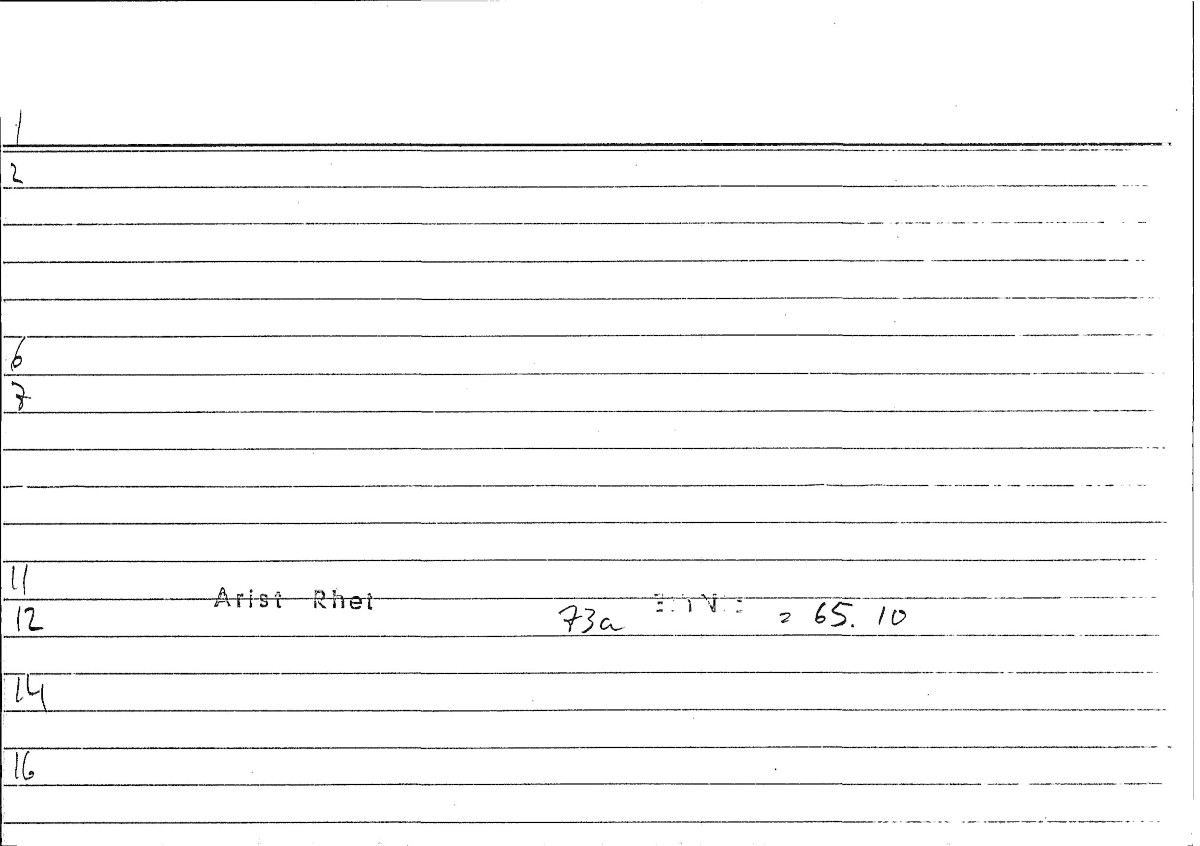 1
2
6
7
11
Arist Rhet
12 73a = 65. 10
14
16